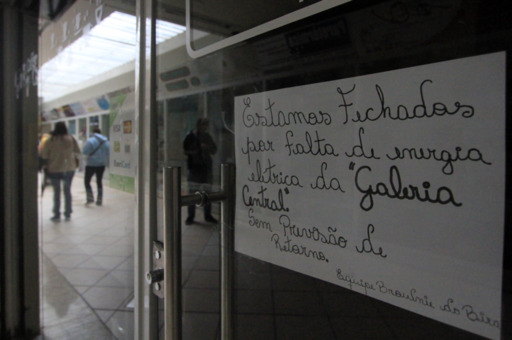 Estamos Fechados
por falta de energia
elétrica da "Galeria
Central"
Sem Previsão de
Retorno.
Equipe